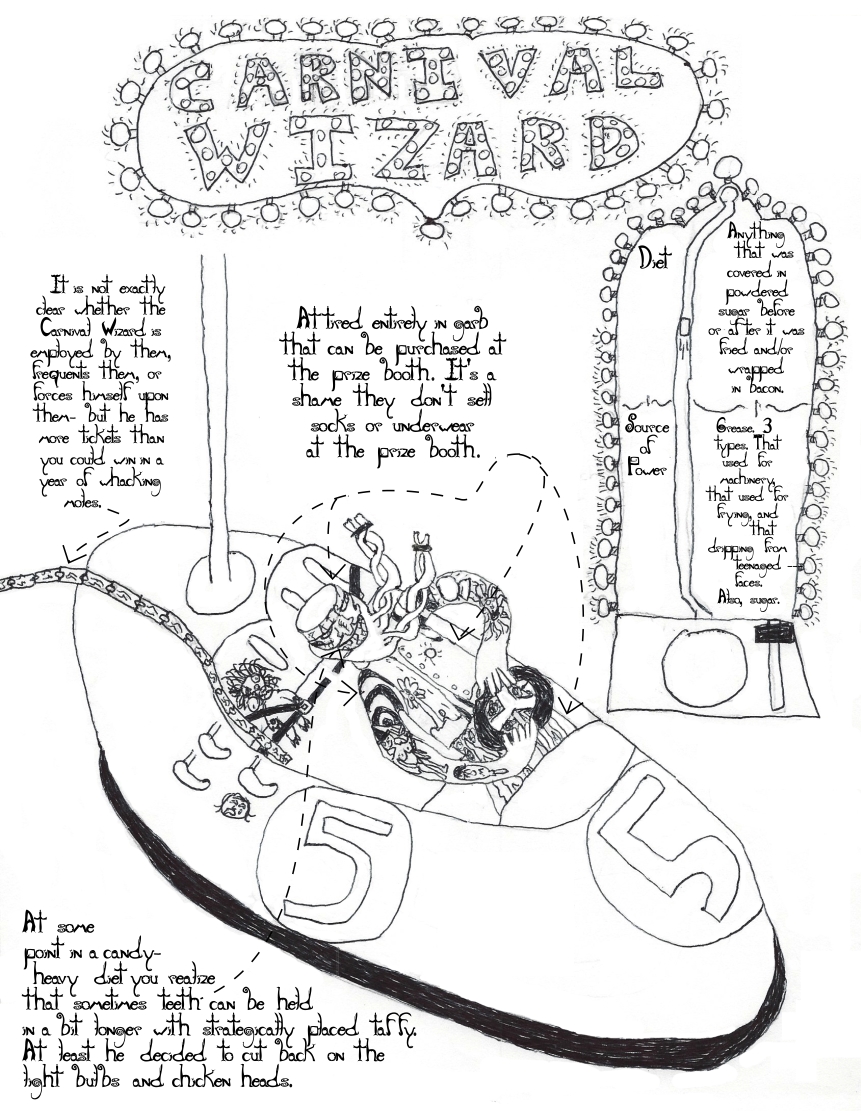 CARNIVAL
WIZARD
Diet
Anything
that was
covered in
powdered
sugar before
or after it was
fried and/or
wrapped
in bacon.
Source
of
Power
Grease, 3
types. That
used for
machinery,
that used for
frying, and
that
dripping from
teenaged
faces.
Also, sugar.
It is not exactly
clear whether the
Carnival Wizard is
employed by them,
frequents them, or
forces himself upon
them- but he has
more tickets than
you could win in a
year of whacking
moles.
Attired entirely in garb
that can be purchased at
the prize booth. It's a
shame they don't sell
socks or underwear
at the prize booth.
5
5
At some
point in a candy-
heavy diet you realize
that sometimes teeth can be held
in a bit longer with strategically placed taffy.
At least he decided to cut back on the
light bulbs and chicken heads.